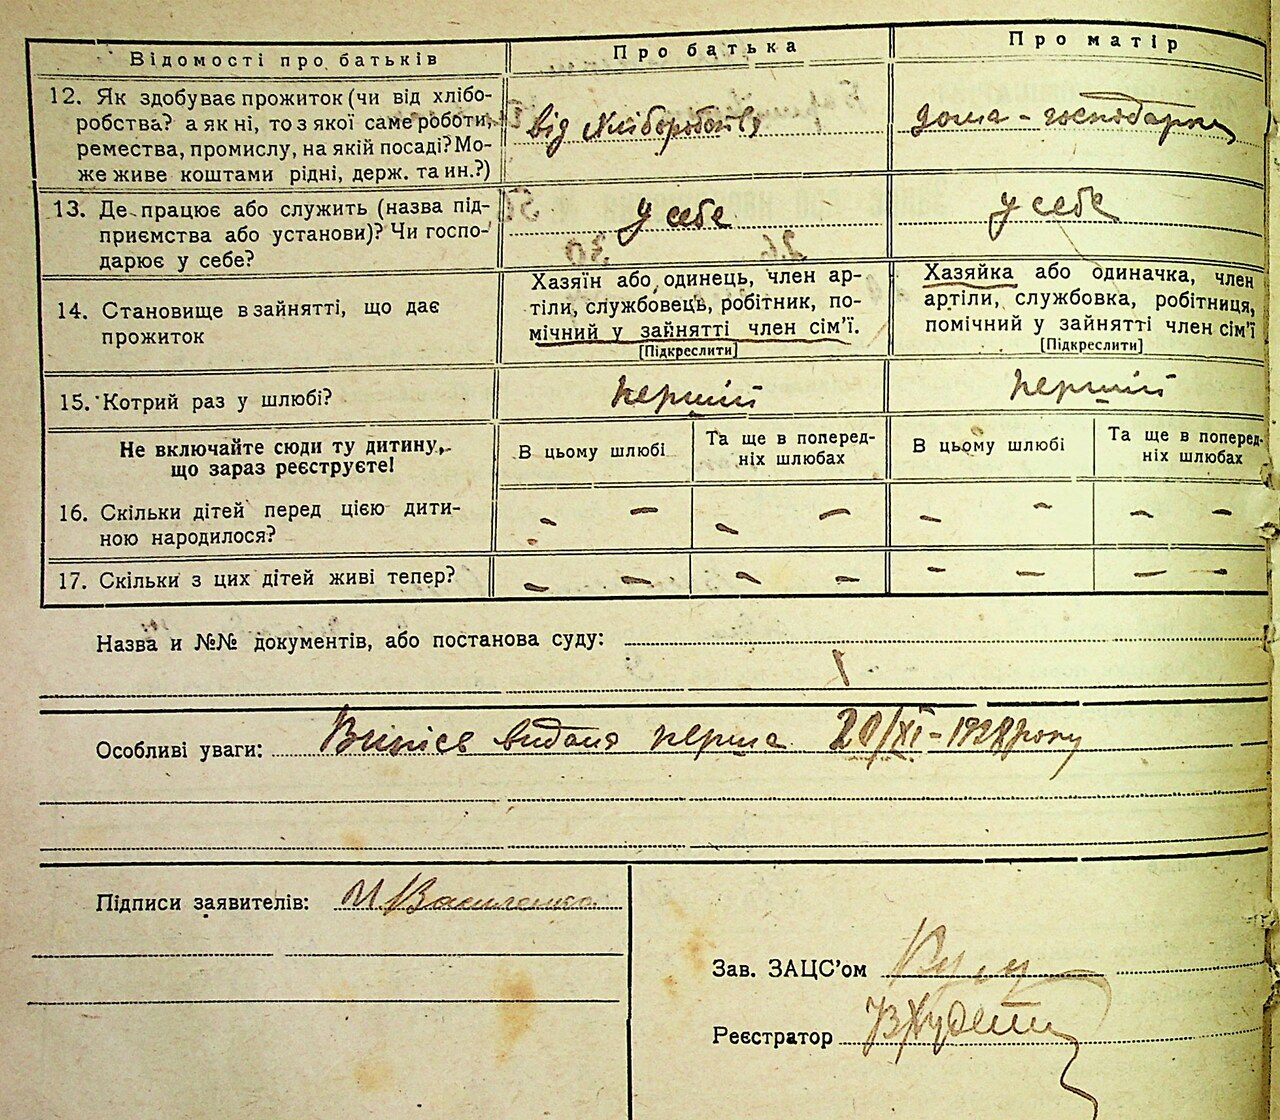 Відомості про батьків
Про батька
Про матір
12. Як здобуває прожиток (чи від хлібо-
робства? а як ні, то з якої саме роботи,
ремества, промислу, на якій посаді? Мо-
же живе коштами рідні, держ. та ин.?)
від хліборобства
дома - господарка
13. Де працює або служить (назва під-
приємства або установи)? Чи госпо-
дарює у себе?
у себе
у себе
14. Становище в зайнятті, що дає
прожиток
Хазяїн або одинець, член ар-
тіли, службовець, робітник, по-
мічний у зайнятті член сім’ї.
[Підкреслити]
Хазяйка або одиначка, член
артіли, службовка, робітниця,
помічний у зайнятті член сім’ї
[Підкреслити]
15. Котрий раз у шлюбі?
перший
перший
Не включайте сюди ту дитину,
що зараз реєструєте!
В цьому шлюбі
Та ще в попоред-
ніх шлюбах
В цьому шлюбі
Та ще в поперед-
ніх шлюбах
16. Скільки дітей перед цією дити-
ною народилося?
- - - - - - - -
17. Скільки з цих дітей живі тепер?
- - - - - - - -
Назва и №№ документів, або постанова суду:
Особливі уваги: Випісь видана перша 20/XI - 1928 року
Підписи заявителів: И Василенко
Зав. ЗАЦС’ом
Реєстратор